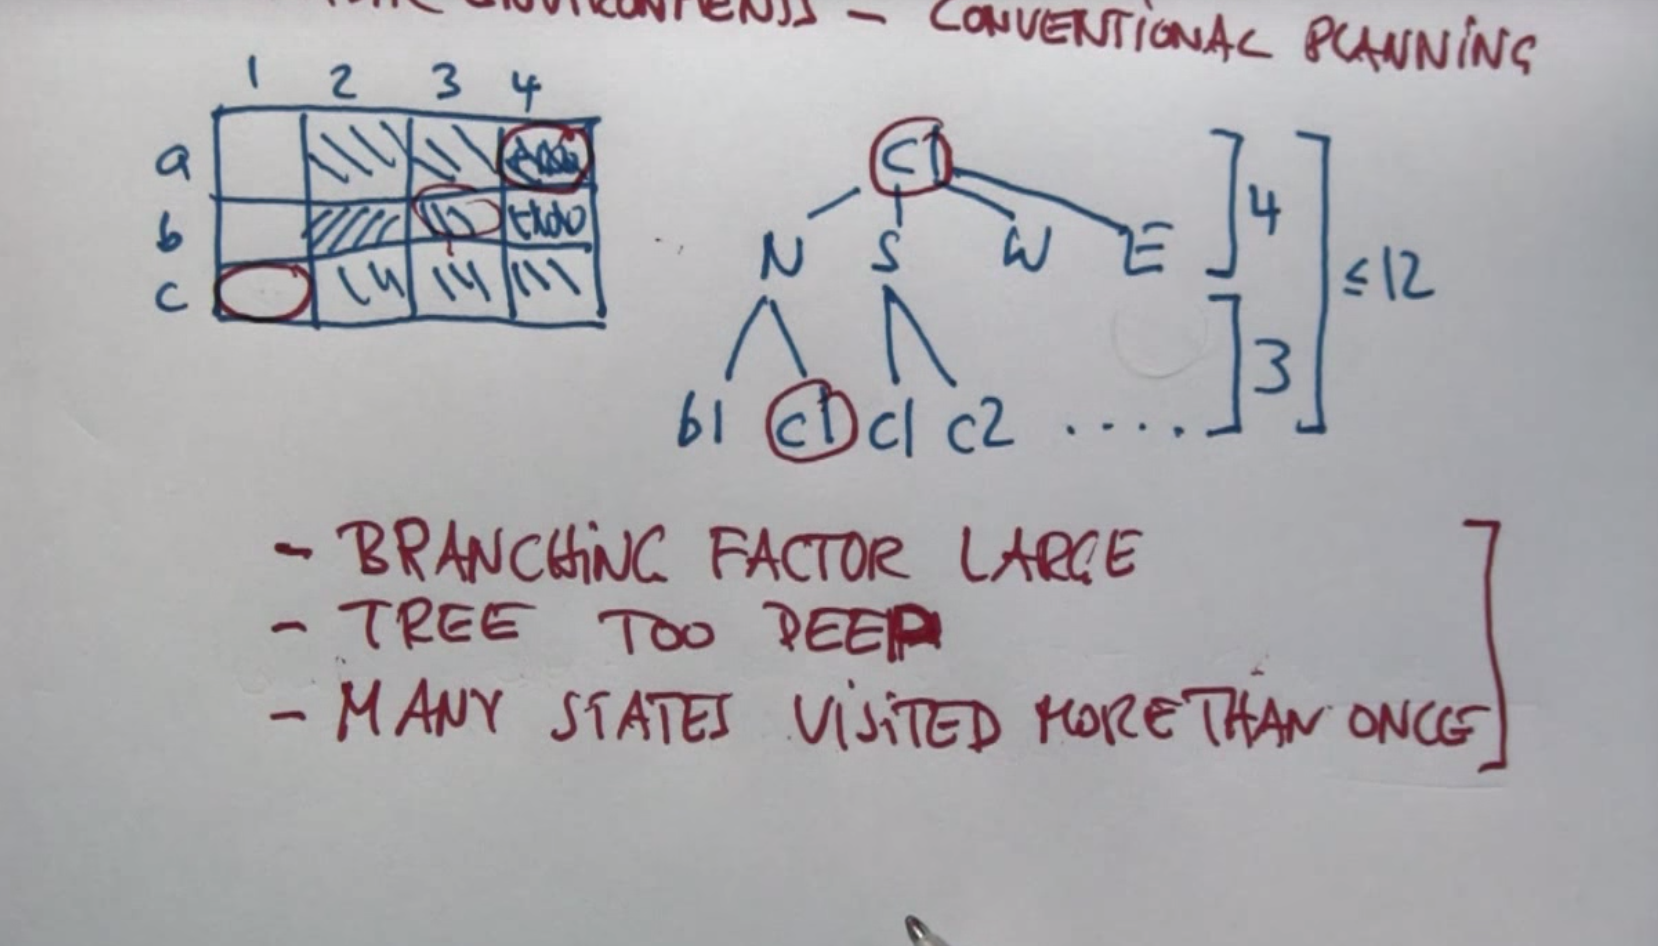 ENVIRONMENTS - CONVENTIONAL PLANNING
1 2 3 4
a
b
c
C1
N S W E
4
≤12
3
b1 c1 c1 c2 .....
- BRANCHING FACTOR LARGE
- TREE TOO DEEP
- MANY STATES VISITED MORE THAN ONCE